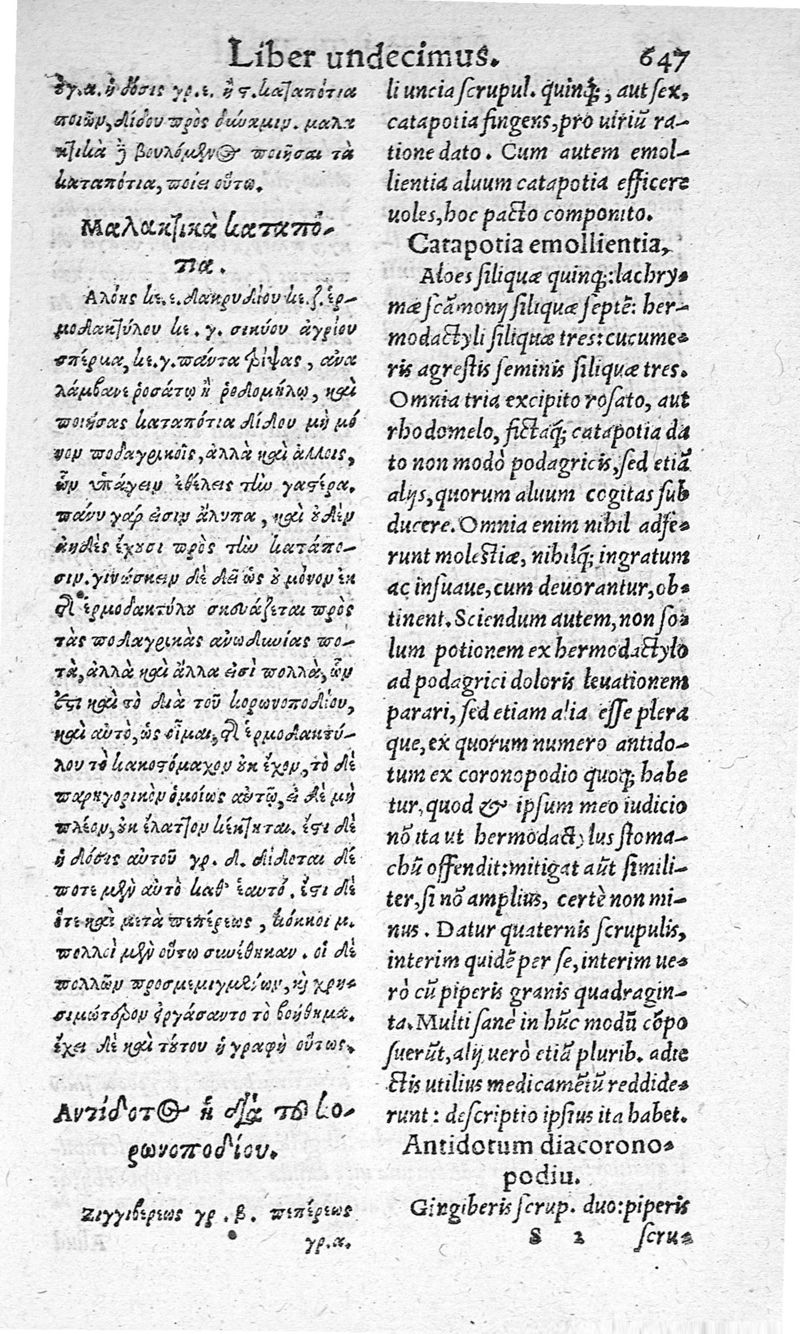 Liber undecimus. 647
ὀγ.α. ἡ δόσις γρ.ε. ἢ ϛ. καταπότια
ποιῶν, δίδου πρὸς δύναμιν. μαλα
κτικὰ ἢ βουλόμενος ποιῆσαι τὰ
καταπότια, ποίει οὕτω.
Μαλακτικὰ καταπό-
τια.
Αλόης κε.ε. δακρυδίου κε.ζ. ἑρ-
μοδακτύλου κε.γ. σικύου ἀγρίου
σπέρμα, κε.γ. πάντα τρίψας, ἀνα
λάμβανε ροσάτῳ ἢ ῥοδομήλῳ, καὶ
ποιήσας καταπότια δίδου μὴ μό
νον ποδαγρικοῖς, ἀλλὰ καὶ ἄλλοις,
ὧν ὑπάγειν ἐθέλεις τὴν γαστέρα.
πάνυ γάρ εἰσιν ἄλυπα, καὶ οὐδὲν
ἀηδὲς ἔχουσι πρὸς τὴν κατάπο-
σιν. γινώσκειν δὲ δεῖ ὡς οὐ μόνον ἐκ
τοῦ ἑρμοδακτύλου σκευάζεται πρὸς
τὰς ποδαγρικὰς ἀνωδυνίας πο-
τὰ, ἀλλὰ καὶ ἄλλα εἰσὶ πολλὰ, ὧν
ἔστι καὶ τὸ διὰ τοῦ κορωνοποδίου,
καὶ αὐτὸ, ὡς οἶμαι, τοῦ ἑρμοδακτύ-
λου τὸ κακοστόμαχον οὐκ ἔχον, τὸ δὲ
παρηγορικὸν ὁμοίως αὐτῷ, εἰ δὲ μὴ
πλέον, οὐκ ἔλαττον κέκτηται. ἔστι δὲ
ἡ δόσις αὐτοῦ γρ. δ. δίδοται δέ
ποτε μὲν αὐτὸ καθ' ἑαυτό. ἔστι δὲ
ὅτε καὶ μετὰ πεπέρεως, κόκκοι μ.
πολλοὶ μὲν οὕτω συνέθηκαν. οἱ δὲ
πολλῶν προσμεμιγμένων, καὶ χρη-
σιμώτερον ἐργάσαντο τὸ βοήθημα.
ἔχει δὲ καὶ τούτου ἡ γραφὴ οὕτως.
Αντίδοτος ἡ διὰ τοῦ κο-
ρωνοποδίου.
Ζιγγιβερεως γρ. β. πεπέρεως
γρ.α.
li uncia scrupul. quinq;, aut sex,
catapotia fingens, pro uiriū ra-
tione dato. Cum autem emol-
lientia aluum catapotia efficere
uoles, hoc pacto componito.
Catapotia emollientia,
Aloes siliquæ quinq;: lachry-
mæ scāmonij siliquæ septē: her-
modactyli siliquæ tres: cucume-
ris agrestis seminis siliquæ tres.
Omnia tria excipito rosato, aut
rhodomelo, fictaq; catapotia da
to non modò podagricis, sed etiā
alijs, quorum aluum cogitas sub
ducere. Omnia enim nihil adfe-
runt molestiæ, nihilq; ingratum
ac insuaue, cum deuorantur, ob-
tinent. Sciendum autem, non so-
lum potionem ex hermodactylo
ad podagrici doloris leuationem
parari, sed etiam alia esse plera
que, ex quorum numero antido-
tum ex coronopodio quoq; habe
tur, quod & ipsum meo iudicio
nō ita ut hermodactylus stoma-
chū offendit: mitigat aūt simili-
ter, si nō amplius, certè non mi-
nus. Datur quaternis scrupulis,
interim quidē per se, interim ue-
rò cū piperis granis quadragin-
ta. Multi sanè in hūc modū cōpo
suerūt, alij uerò etiā plurib. adie
ctis utilius medicamētū reddide-
runt: descriptio ipsius ita habet.
Antidotum diacorono-
podiu.
Gingiberis scrup. duo: piperis
S 2 scru-